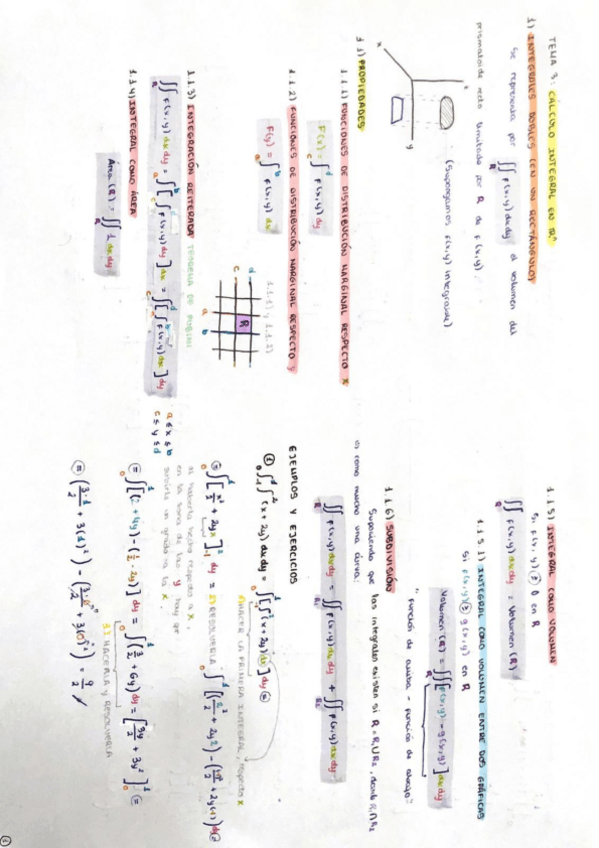 TEMA 3: CALCULO INTEGRAL EN ℝⁿ
1) INTEGRALES DOBLES (EN UN RECTÁNGULO)
Se representa por ∬_R f(x,y) dxdy el volumen del
prismatoide recto limitado por R de f(x,y).
(Supongamos f(x,y) integrable)
x
y
1.1) PROPIEDADES
1.1.1) FUNCIONES DE DISTRIBUCIÓN MARGINAL RESPECTO X
F(x) = ∫_c^d f(x,y) dy
1.1.2) FUNCIONES DE DISTRIBUCIÓN MARGINAL RESPECTO y
F(y) = ∫_a^b f(x,y) dx
1.1.1) y 1.1.2)
d
c
R
a b
1.1.3) INTEGRACIÓN REITERADA TEOREMA DE FUBINI
∬_R f(x,y) dxdy = ∫_a^b [∫_c^d f(x,y) dy] dx = ∫_c^d [∫_a^b f(x,y) dx] dy
a ≤ x ≤ b
c ≤ y ≤ d
1.1.4) INTEGRAL COMO ÁREA
Área (R) = ∬_R 1 dxdy
1.1.5) INTEGRAL COMO VOLUMEN
Si f(x,y) ≥ 0 en R
∬_R f(x,y) dxdy = Volumen (R)
1.1.5.1) INTEGRAL COMO VOLUMEN ENTRE DOS GRÁFICAS
Si f(x,y) ≥ g(x,y) en R
Volumen (R) = ∬_R [f(x,y) - g(x,y)] dxdy
"función de arriba - función de abajo"
1.1.6) SUBDIVISIÓN
Suponiendo que las integrales existen si R = R₁ ∪ R₂, donde R₁ ∩ R₂
es como mucho una curva:
∬_R f(x,y) dxdy = ∬_R₁ f(x,y) dxdy + ∬_R₂ f(x,y) dxdy
EJEMPLOS Y EJERCICIOS
1) HACER LA PRIMERA INTEGRAL, respecto x
① ∫_0^1 ∫_{-1}^2 (x + 2y) dxdy = ∫_0^1 [∫_{-1}^2 (x + 2y) dx] dy =
= ∫_0^1 [x²/2 + 2yx]_{-1}^2 dy = 2) RESOLVERLA
al haberla hecho respecto a x,
en la hora de las y hay que
subirle un grado a la x.
= ∫_0^1 [(2 + 4y) - (1/2 - 2y)] dy = ∫_0^1 (3/2 + 6y) dy = [3y/2 + 3y²]_0^1 =
3) HACERLA Y RESOLVERLA
= (3·1/2 + 3(1)²) - (3·0/2 + 3(0)²) = 9/2
1